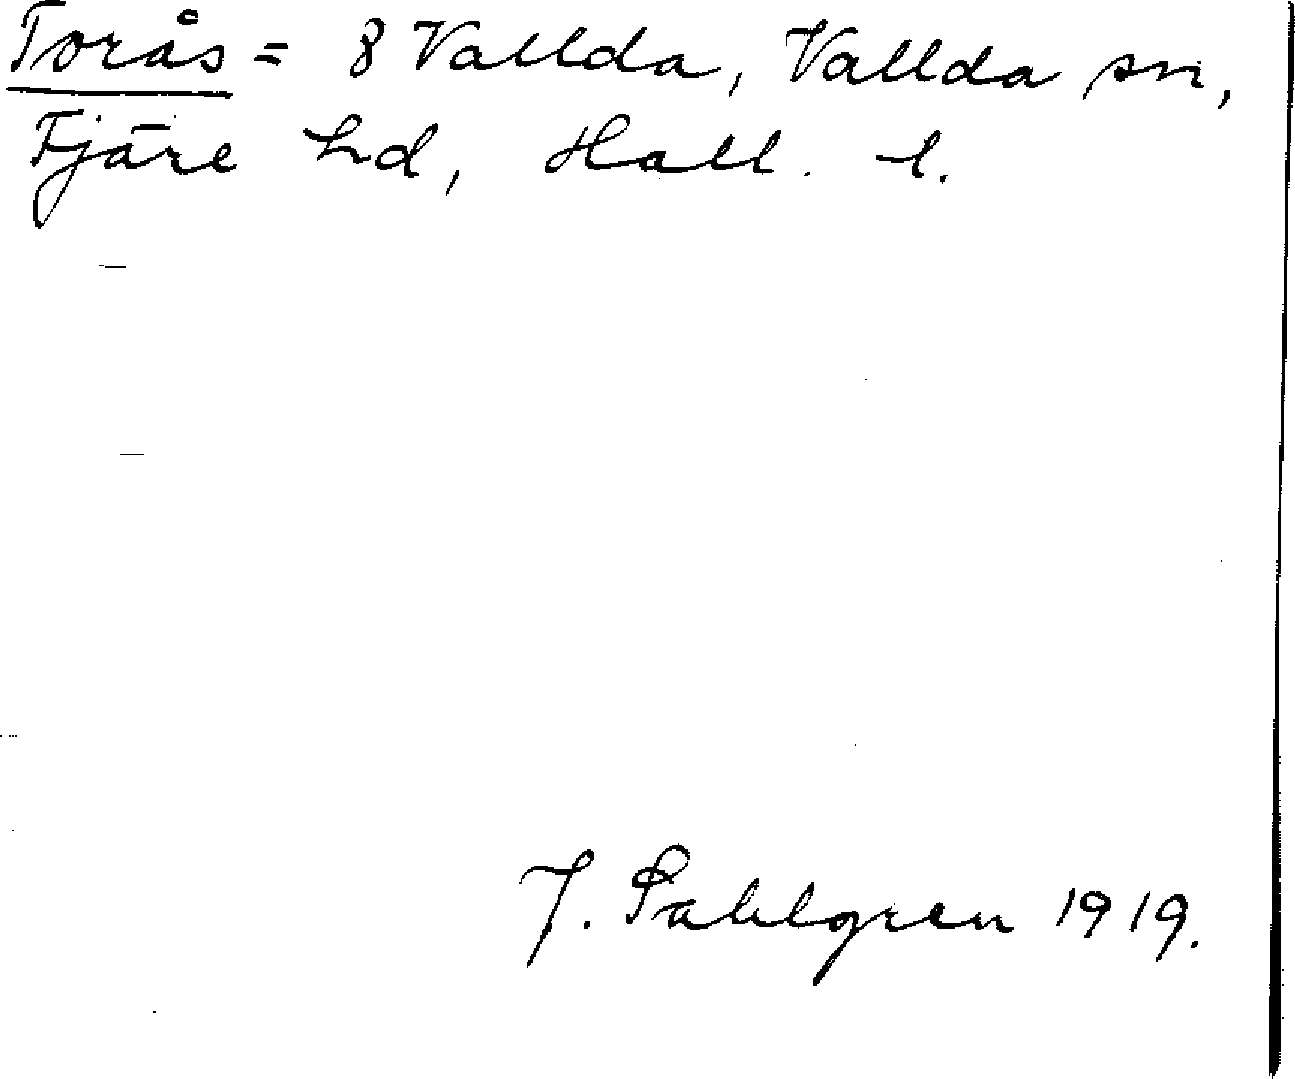 Torås = 8 Vallda, Vallda sn,
Fjäre hd, Hall. l.
J. Sahlgren 1919.